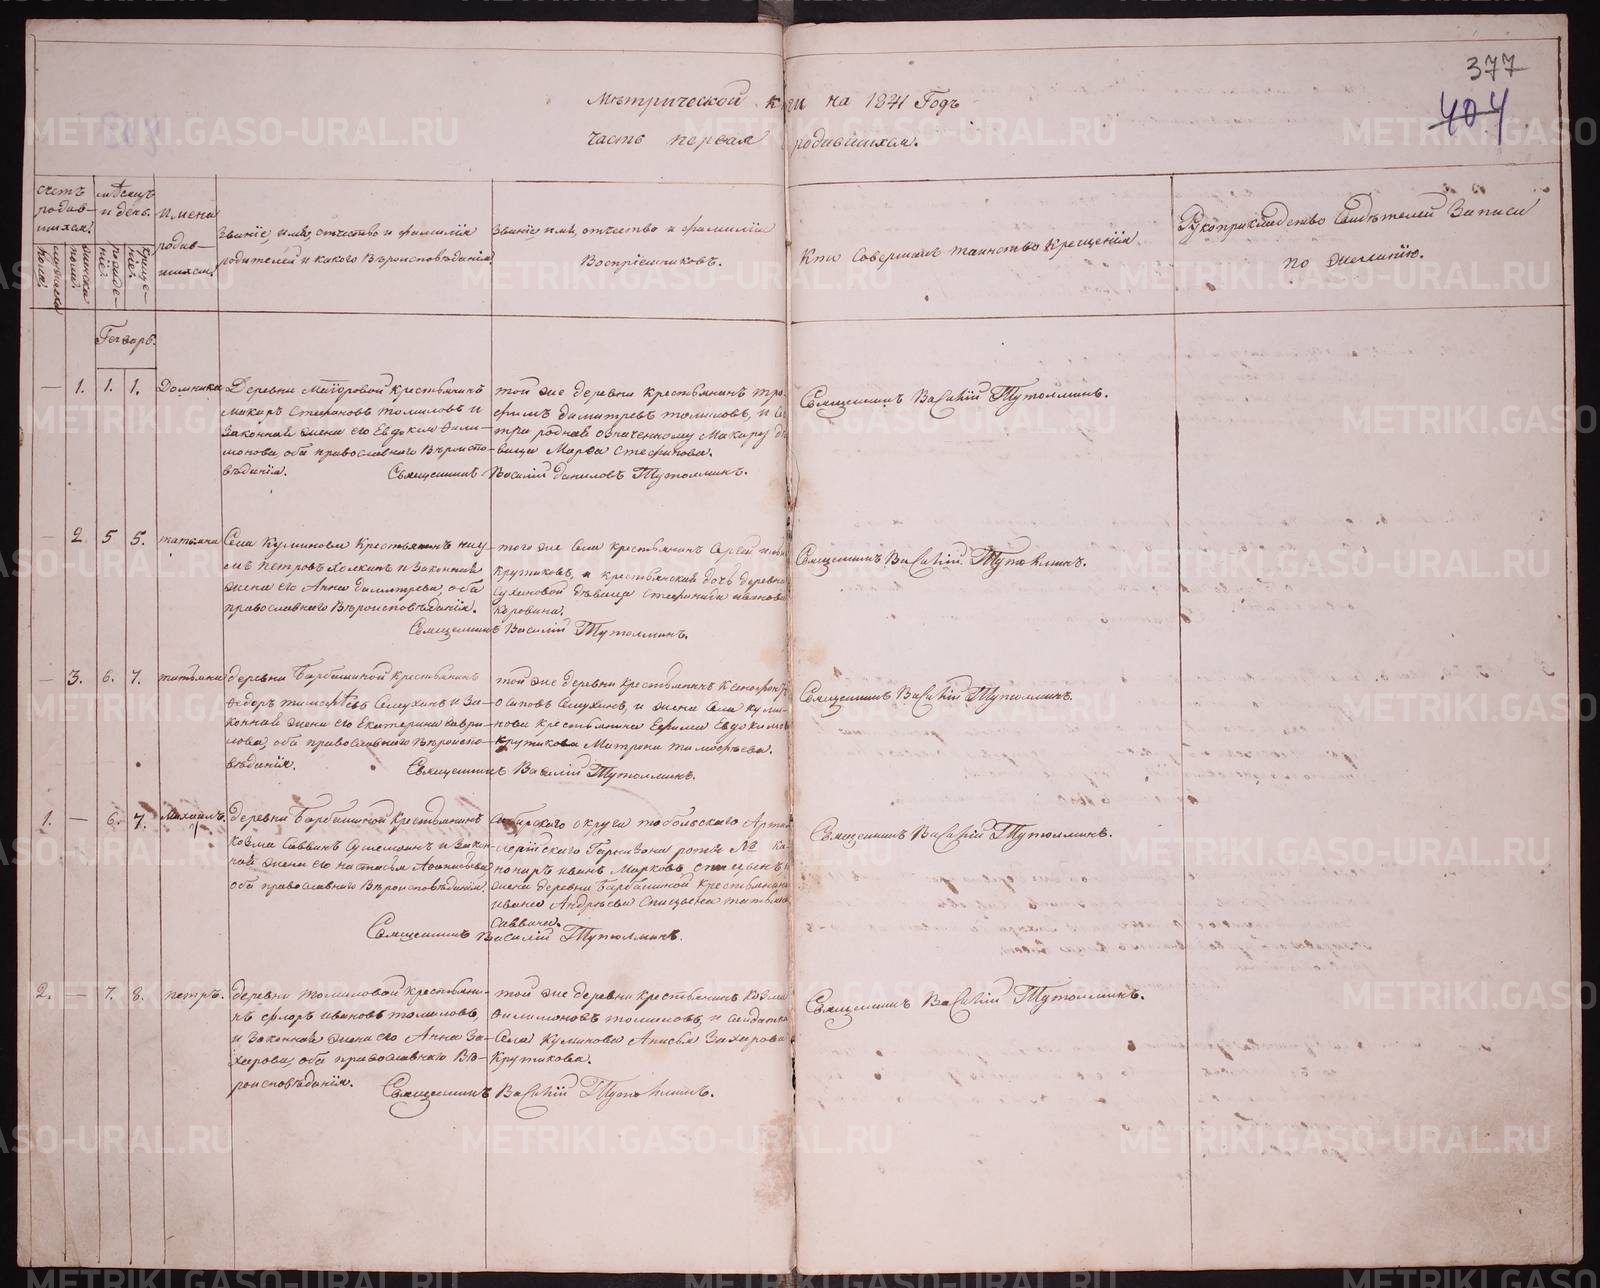 377
404
Метрической книги на 1841 Годъ
часть первая родившихся.
счетъ родив-шихся.
мѣсяцъ и день.
имена родив-шихся.
Званіе, имя, отчество и фамилія родителей и какого Вѣроисповѣданія.
Званіе имя, отчество и фамилія Воспріемниковъ.
Кто Совершалъ таинство Крещенія
Рукоприкладство Свидѣтелей Записи по желанію.
мужеска пола.
женска пола.
рожде-ніе.
креще-ніе.
Генварь.
— 1. 1. 1. Домника
Деревни Маіоровой крестьянинъ
макаръ Стефановъ томиловъ и
Законная жена его Евдокія Фили-
монова, оба православнаго Вѣроиспо-
вѣданія.
той же деревни крестьянинъ тро-
фимъ димитревъ томиловъ, и Се-
тра родная означенному Макару дѣ-
вица Марѳа Стефанова.
Священникъ Василій даниловъ Тутолминъ.
Священникъ Василій Тутолминъ.
— 2. 5 5. татьяна
Села Куминова Крестьянинъ нау-
мъ Петровъ и Законная
жена его Анна димитрева, оба
православнаго Вѣроисповѣданія.
того же Села крестьянинъ Сергей
крутиковъ, и крестьянская дочь деревни
Сухановой дѣвица Стефанида
Коровина.
Священникъ Василій Тутолминъ.
Священникъ Василій Тутолминъ.
— 3. 6. 7. татьяна
деревни Барбашиной крестьянинъ
Ѳедоръ тимофѣевъ и За-
конная жена его Екатерина гаври-
лова, оба православнаго Вѣроиспо-
вѣданія.
той же деревни крестьянинъ Ксенофонтъ
осиповъ и жена Села куми-
нова крестьянина Ефима Евдокимова
крутикова Матрона тимофѣева.
Священникъ Василій Тутолминъ.
Священникъ Василій Тутолминъ.
1. — 6. 7. Михаилъ.
деревни Барбашиной Крестьянинъ
козма Саввинъ и Закон-
ная жена его настасья
оба православнаго Вѣроисповѣданія.
Сибирского округа тобольскаго Арти-
лерійскаго Гарнизона роты № ка-
нониръ иванъ Марковъ и
жена деревни Барбашиной крестьянина
ивана Андреева татьяна
Саввина.
Священникъ Василій Тутолминъ.
Священникъ Василій Тутолминъ.
2. — 7. 8. петръ.
деревни томиловой крестьяни-
нъ флоръ ивановъ томиловъ,
и Законная жена его Анна За-
харова, оба православнаго Вѣ-
роисповѣданія.
той же деревни крестьянинъ козма
Филимоновъ томиловъ, и Салдатка
Села куминова Анисья Захарова
Крутикова.
Священникъ Василій Тутолминъ.
Священникъ Василій Тутолминъ.
METRIKI.GASO-URAL.RU